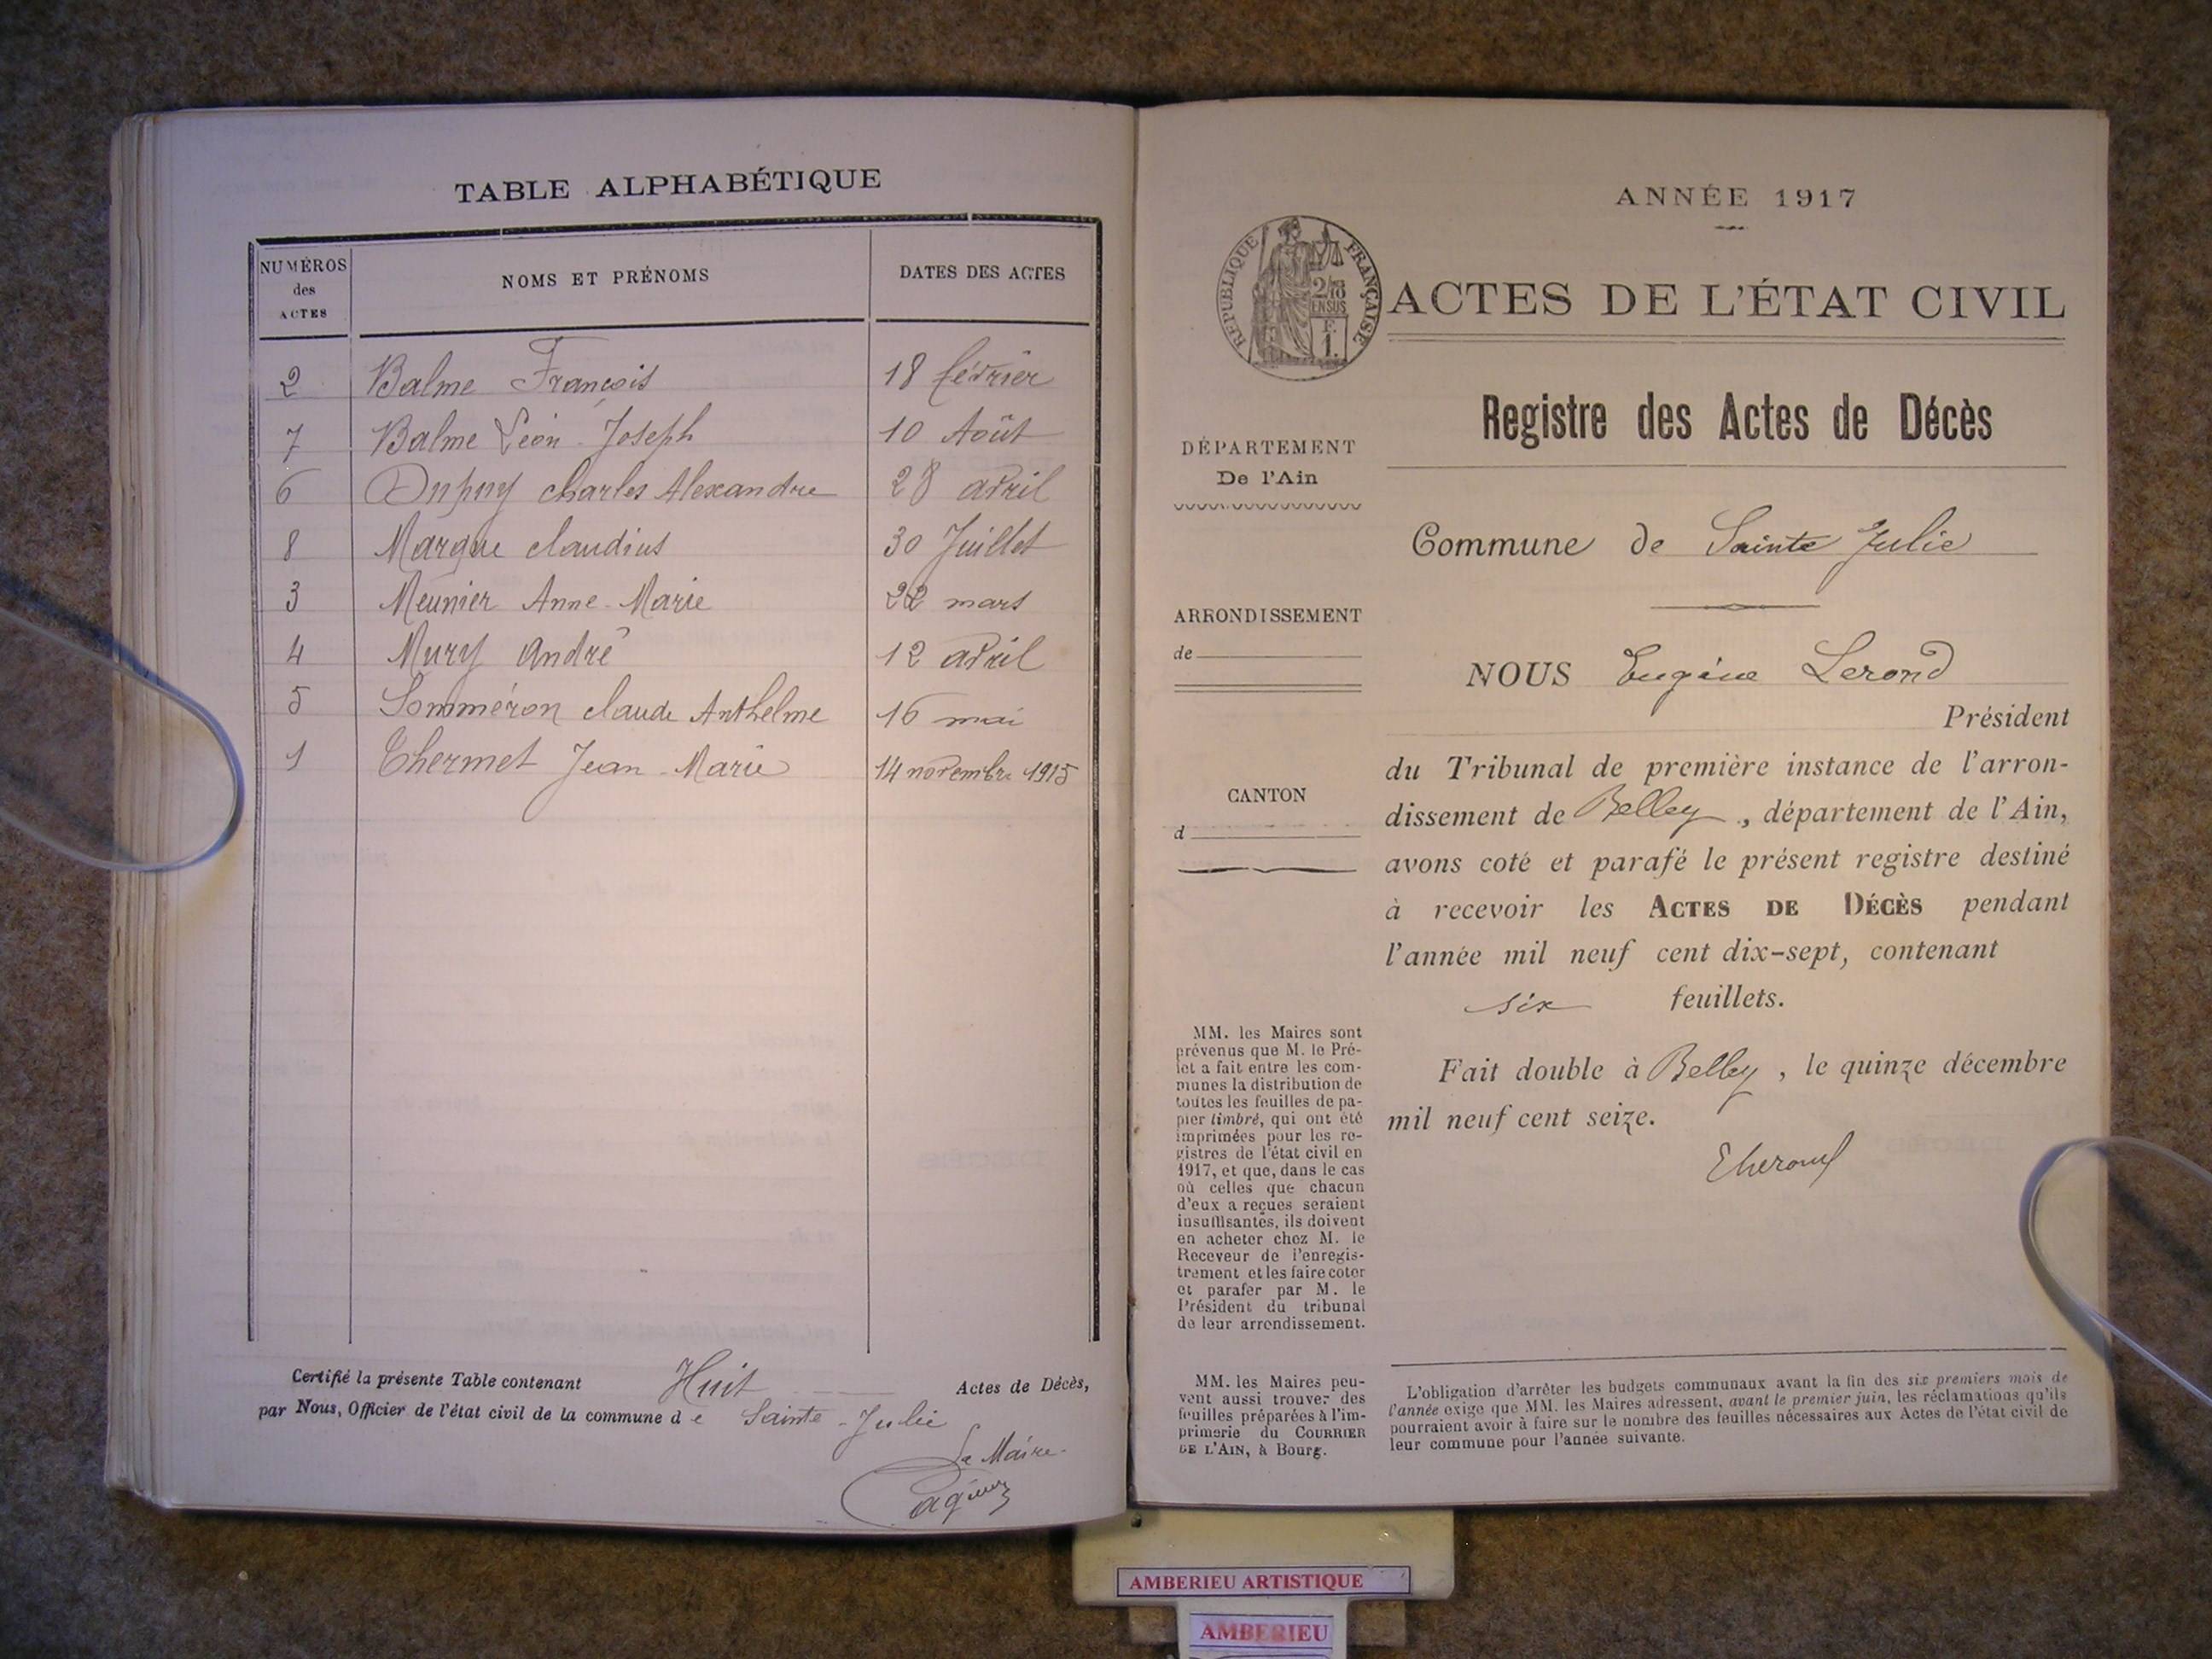 TABLE ALPHABÉTIQUE
NUMÉROS des ACTES NOMS ET PRÉNOMS DATES DES ACTES
2 Balme François 18 février
7 Balme Léon Joseph 10 Août
6 Dupuy charles Alexandre 28 avril
8 Marque claudius 30 Juillet
3 Meunier Anne-Marie 22 mars
4 Mury André 12 avril
5 Somméron claude Anthelme 16 mai
1 Thermet Jean-Marie 14 novembre 1915
Certifié la présente Table contenant Huit Actes de Décès,
par Nous, Officier de l'état civil de la commune de Sainte-Julie
Le Maire
ANNÉE 1917
RÉPUBLIQUE FRANÇAISE
2/10 EN SUS
F. 1.
ACTES DE L'ÉTAT CIVIL
Registre des Actes de Décès
DÉPARTEMENT
De l'Ain
Commune de Sainte Julie
ARRONDISSEMENT
de
CANTON
d
NOUS Eugène Lerond
Président
du Tribunal de première instance de l'arron-
dissement de Belley, département de l'Ain,
avons coté et parafé le présent registre destiné
à recevoir les ACTES DE DÉCÈS pendant
l'année mil neuf cent dix-sept, contenant
six feuillets.
Fait double à Belley, le quinze décembre
mil neuf cent seize.
MM. les Maires sont
prévenus que M. le Pré-
fet a fait entre les com-
munes la distribution de
toutes les feuilles de pa-
pier timbré, qui ont été
imprimées pour les re-
gistres de l'état civil en
1917, et que, dans le cas
où celles que chacun
d'eux a reçues seraient
insuffisantes, ils doivent
en acheter chez M. le
Receveur de l'enregis-
trement et les faire coter
et parafer par M. le
Président du tribunal
de leur arrondissement.
MM. les Maires peu-
vent aussi trouver des
feuilles préparées à l'im-
primerie du COURRIER
DE L'AIN, à Bourg.
L'obligation d'arrêter les budgets communaux avant la fin des six premiers mois de
l'année exige que MM. les Maires adressent, avant le premier juin, les réclamations qu'ils
pourraient avoir à faire sur le nombre des feuilles nécessaires aux Actes de l'état civil de
leur commune pour l'année suivante.
AMBERIEU ARTISTIQUE
AMBERIEU